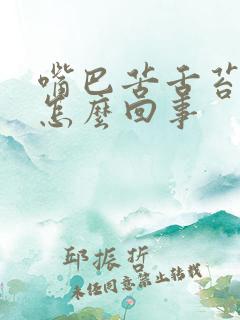 嘴巴苦舌苔
怎麼回事
邱振哲
品
未经同意禁止转载